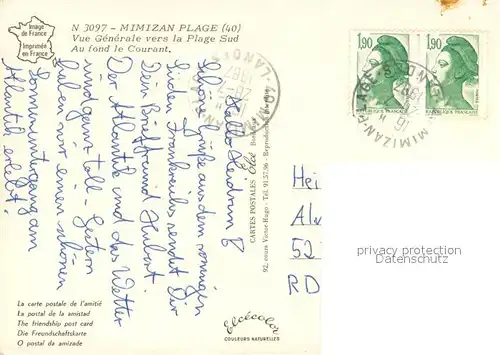 Image
de France
Imprimée
en France
N 3097 - MIMIZAN PLAGE (40)
Vue Générale vers la Plage Sud
Au fond le Courant.
Hallo Heidrun!
Schöne Grüße aus dem sonnigen
Süden Frankreichs sendet Dir
Dein Brieffreund Hubert.
Der Atlantik und das Wetter
sind ganz toll - Gestern
haben wir einen schönen
Sonnenuntergang am
Atlantik erlebt!
CARTES POSTALES Elcé Bordeaux
92, cours Victor Hugo - Tél. 91.57.96 - Reproduction
1,90
1,90
MIMIZAN PLAGE LANDES
16
1987
Hei
Al
52
RD
privacy protection
Datenschutz
La carte postale de l'amitié
La postal de la amistad
The friendship post card
Die Freundschaftskarte
O postal da amizade
elcécolor
COULEURS NATURELLES